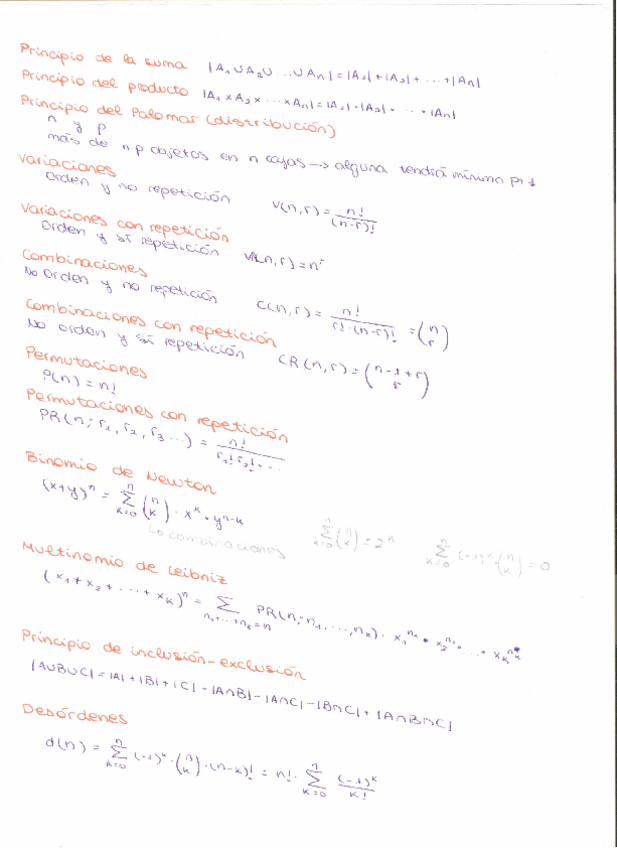 Principio de la suma |A₁∪A₂∪ ...∪An| = |A₁|+|A₂|+ ... +|An|
Principio del producto |A₁×A₂× ... ×An| = |A₁|·|A₂|· ... ·|An|
Principio del Palomar (distribución)
n y p
más de np objetos en n cajas → alguna tendrá mínimo p+1
Variaciones
Orden y no repetición V(n,r) = n!/(n-r)!
Variaciones con repetición
Orden y sí repetición VR(n,r) = nʳ
Combinaciones
No Orden y no repetición C(n,r) = n!/(r!·(n-r)!) = (n r)
Combinaciones con repetición
No orden y sí repetición CR(n,r) = (n-1+r r)
Permutaciones
P(n) = n!
Permutaciones con repetición
PR(n; r₁, r₂, r₃ ...) = n!/(r₁! r₂! ...)
Binomio de Newton
(x+y)ⁿ = Σ k=0 n (n k) · xᵏ · yⁿ⁻ᵏ
Lo combinaciones
Σ k=0 n (n k) = 2ⁿ Σ k=0 n (-1)ᵏ·(n k) = 0
Multinomio de Leibniz
(x₁+x₂+ ... +xₖ)ⁿ = Σ n₁+...+nₖ=n PR(n; n₁, ..., nₖ) · x₁ⁿ¹ · x₂ⁿ² · ... · xₖⁿᵏ
Principio de inclusión-exclusión
|A∪B∪C| = |A|+|B|+|C| - |A∩B| - |A∩C| - |B∩C| + |A∩B∩C|
Desórdenes
d(n) = Σ k=0 n (-1)ᵏ·(n k)·(n-k)! = n!· Σ k=0 n (-1)ᵏ/k!